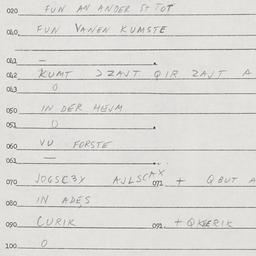 020 FUN AN ANDER STTOT
040 FUN VANEN KUMSTE
041 —
042 KUMT ZZAJT QIR ZAJT A
043 0
050 IN DER HEJM
051 0
060 VU FORSTE
061 —
070 AJLSCAX 071 + QBUT A
080 IN ADES
090 CURIK 091 + QKEERIK
100 0